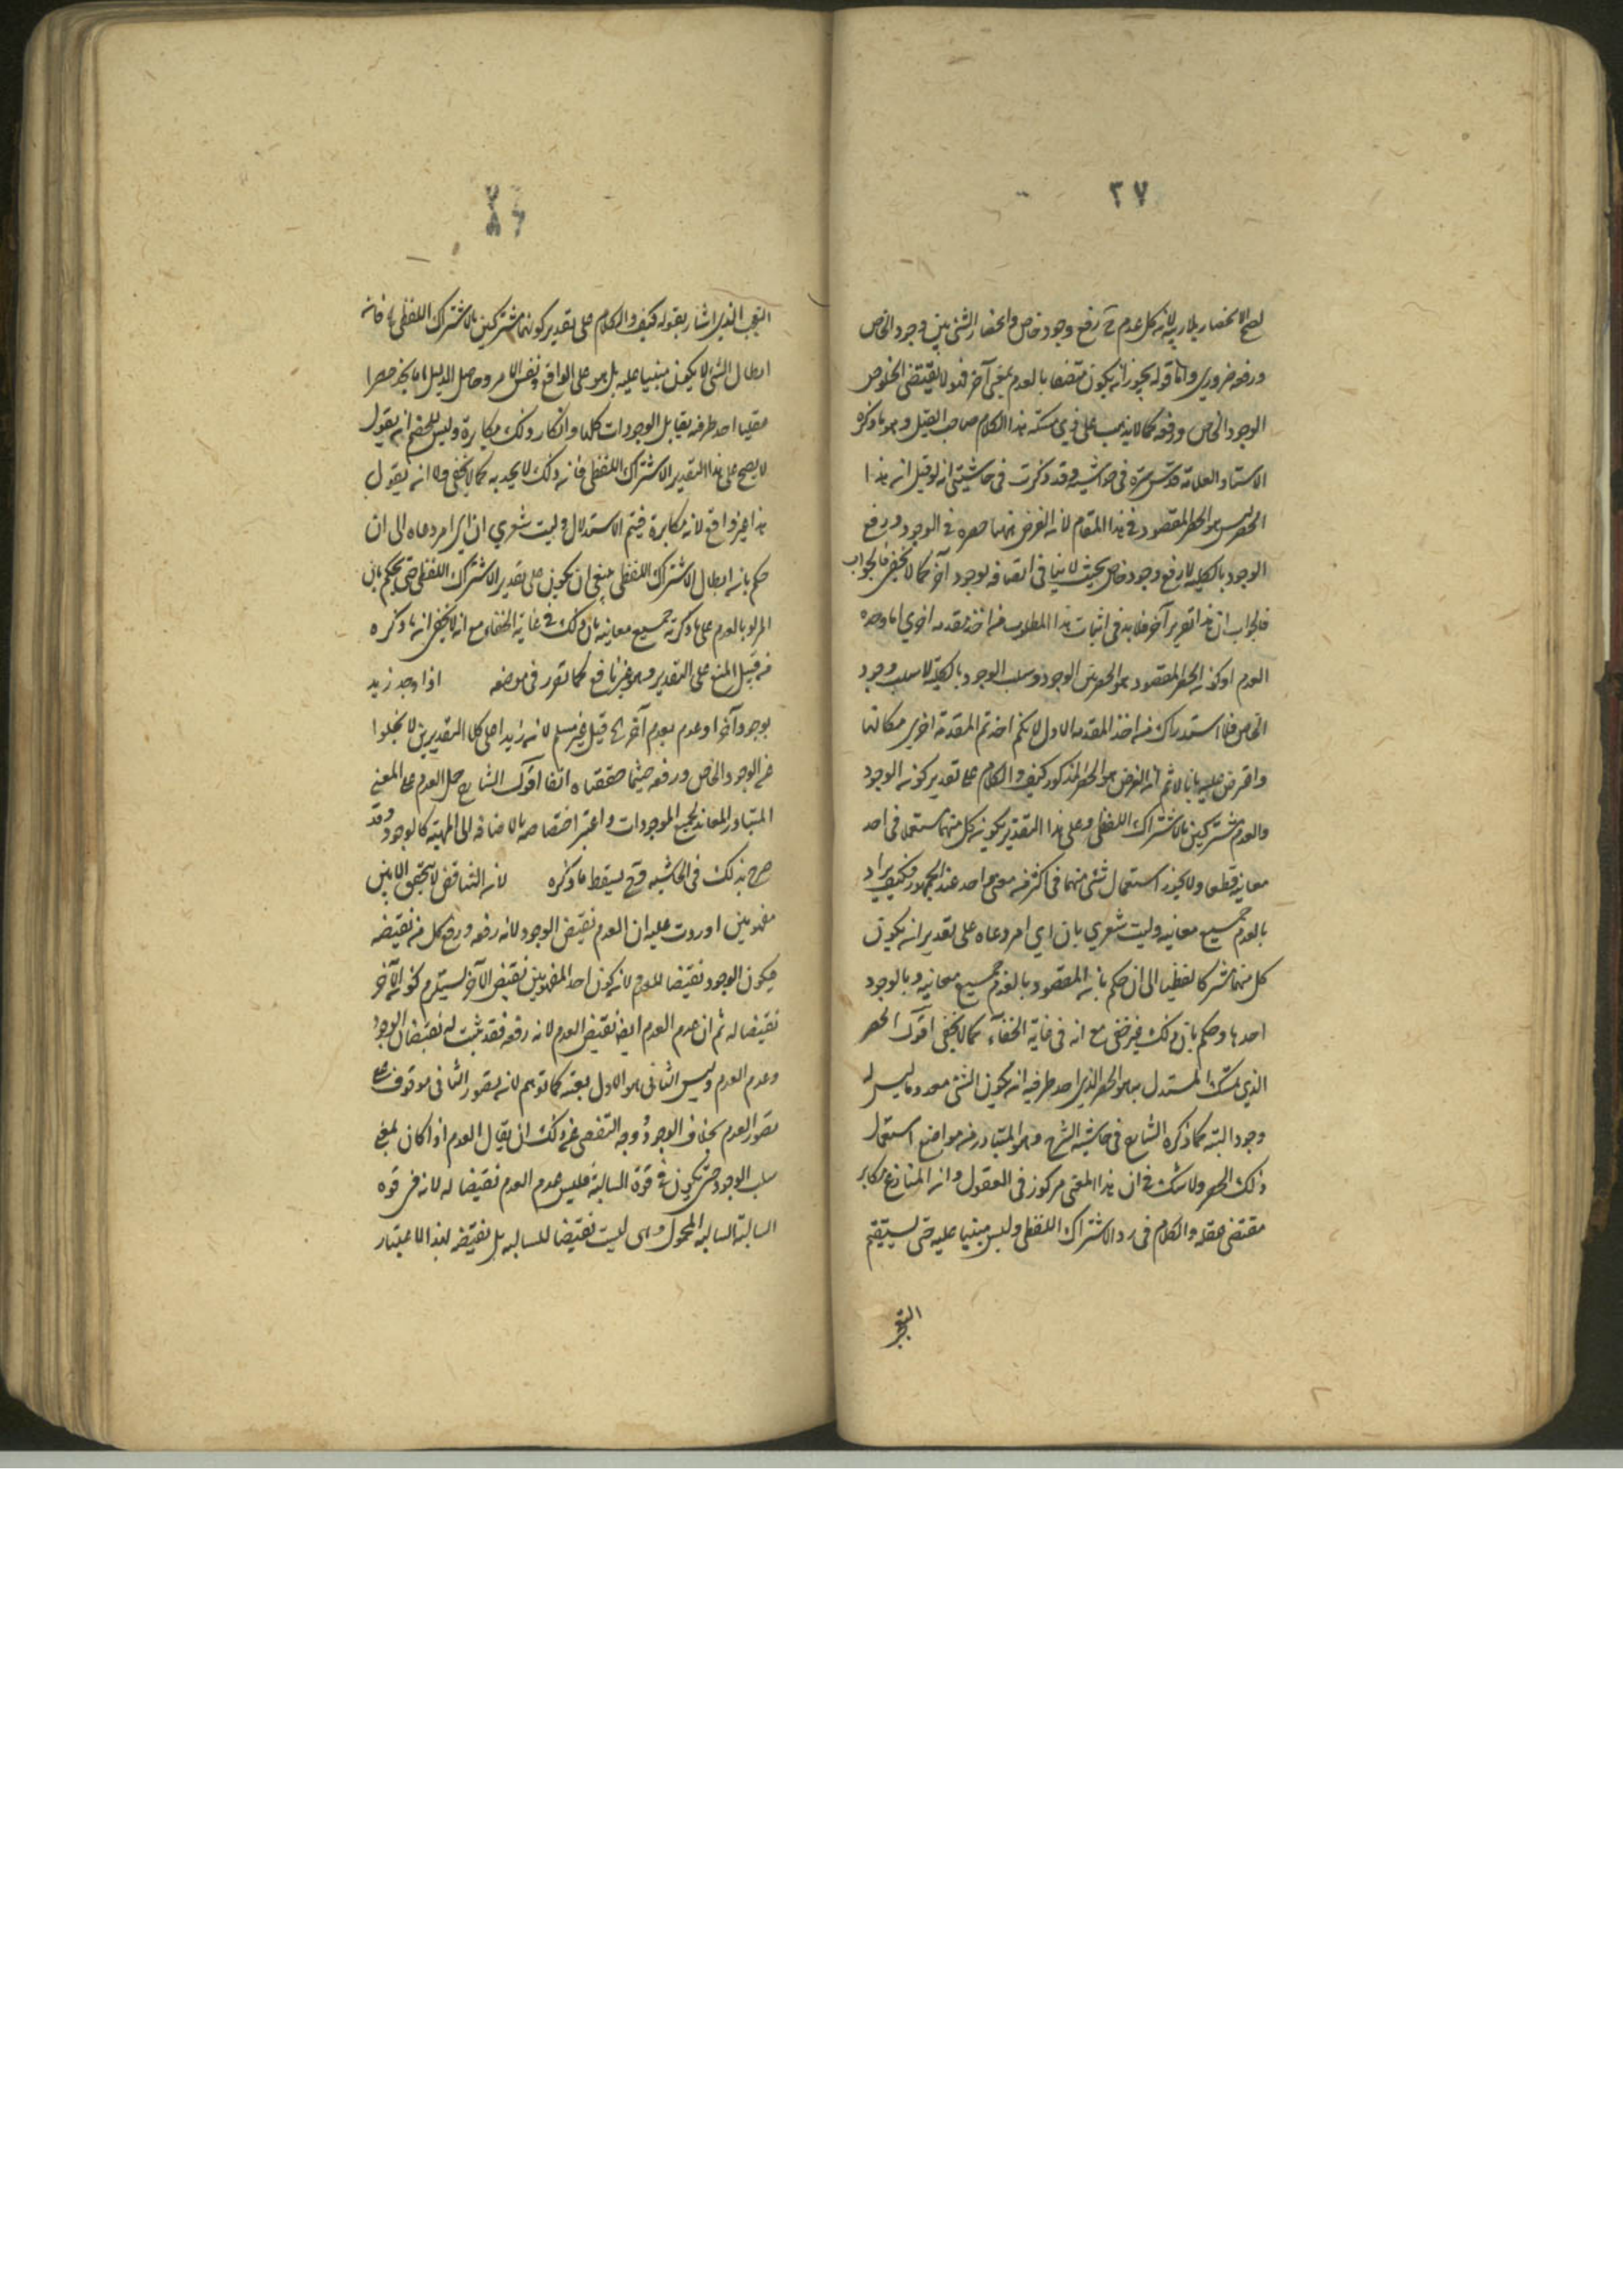 ٢٧
لصح الانحصار بلا ريبة لان كل عدم ح رفع وجود خاص وانحصار الشئ بين وجود الخاص
ورفعه ضروري واما قوله يجوز ان يكون متصفا بالعدم بمعنى آخر فهو لا يقتضى الخلو عن
الوجود الخاص ورفعه كما لا يذهب على ذي مسكة هذا الكلام صاحب القيل وهو ما ذكره
الاستاد العلامة قدس سره في حواشيه وقد ذكرت في حاشيتي انه لو قيل ان هذا
الحصر ليس هو الحصر المقصود في هذا المقام لان الغرض ههنا حصره في الوجود ورفع
الوجود بالكلية لا رفع وجود خاص بحيث لا ينافى اتصافه بوجود آخر كما لا يخفى فالجواب
فالجواب ان هذا تقرير آخر فلا بد في اثبات هذا المطلوب من اخذ مقدمة اخرى اما وحدة
العدم او كون الحصر المقصود هو الحصر بين الوجود وسلب الوجود بالكلية لا سلب وجود
الخاص فلا استدراك من اخذ المقدمة الاولى لانكم اخذتم المقدمة اخرى مكانها
واعترض عليه بانا لا ثم ان الغرض هو الحصر المذكور كيف والكلام على تقدير كون الوجود
والعدم مشتركين بالاشتراك اللفظى وعلى هذا التقدير يكون كل منهما مستعملا في احد
معانيه قطعا ولا يجوز استعمال شئ منهما في اكثر من معنى واحد عند الجمهور فكيف يراد
بالعدم جميع معانيه وليت شعري بان اي امر دعاه على تقدير ان يكون
كل منهما مشتركا لفظيا الى ان حكم بان المقصود بالعدم جميع معانيه وبالوجود
احدها وحكم بان ذلك غير خفى مع انه في غاية الخفاء كما لا يخفى اقول الحصر
الذي تمسك المستدل به هو الحصر الذي احد طرفيه ان يكون الشئ معدوما ليس له
وجود البتة كما ذكره الشارح في حاشية الشرح وهو المتبادر من مواضع استعمال
ذلك الحصر ولا شك في ان هذا المعنى مركوز في العقول وان المنازع مكابر
مقتضى عقله والكلام في رد الاشتراك اللفظى وليس مبنيا عليه حتى يستقيم
التعجب
التعجب الذي اشار بقوله كيف والكلام على تقدير كونهما مشتركين بالاشتراك اللفظى فان
ابطال الشئ لا يكون مبنيا عليه بل هو على الواقع ونفس الامر وحاصل الدليل انا نجد حصرا
عقليا احد طرفيه يقابل الوجودات كلها وانكار ذلك مكابرة وليس للخصم ان يقول
لا يصح على هذا التقدير الاشتراك اللفظى فان ذلك لا يجديه كما لا يخفى ولا ان يقول
هذا غير واقع لانه مكابرة فيتم الاستدلال وليت شعري ان اي امر دعاه الى ان
حكم بان ابطال الاشتراك اللفظى ينبغى ان يكون على تقدير الاشتراك اللفظى حتى يحكم بان
المراد بالعدم على ما ذكرته جميع معانيه بان ذلك في غاية الخفاء مع انه لا يخفى ان ما ذكره
من قبيل المنع على التقدير وهو غير نافع كما تقرر في موضعه اذا وجد زيد
بوجود آخر او عدم بعدم آخر الخ قيل غير مسلم لان زيدا على كلا التقديرين لا يخلوا
عن الوجود الخاص ورفعه حيثما حققناه انفا اقول الشارح حمل العدم على المعنى
المتبادر المعاند لجميع الموجودات واعتبر اختصاصه بالاضافة الى المهية كالوجود وقد
صرح بذلك في الحاشية وح يسقط ما ذكره لان التناقض لا يتحقق الا بين
مفهومين اوردت عليه ان العدم نقيض الوجود لانه رفعه ورفع كل من نقيضه
فيكون الوجود نقيضا للعدم لان كون احد المفهومين نقيض الآخر يستلزم كون الآخر
نقيضا له ثم ان عدم العدم ايضا نقيض العدم لانه رفعه فقد ثبت له نقيضان الوجود
وعدم العدم وليس الثانى هو الاول بعينه كما توهم لان تصور الثانى موقوف على
تصور العدم بخلاف الوجود ووجه التفصى عن ذلك ان يقال العدم اذا كان بمعنى
سلب الوجود حتى يكون في قوة السالبة فليس عدم العدم نقيضا له لانه في قوة
السالبة السالبة المحمول وهى ليست نقيضا للسالبة بل نقيضه لهذا الاعتبار